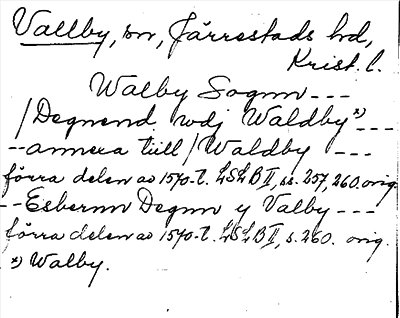 Vallby, sn, Järrestads hd,
Krist. l.
Walby Sognn ---
/Degnend udj Waldby x) ---
-- annera tiill/Waldby ---
förra delen av 1570-t. LSLB II, ss. 257, 260. orig.
-- Esbernn Degnn y Valby ---
förra delen av 1570-t. LSLB II, s. 260. orig.
x) Walby.